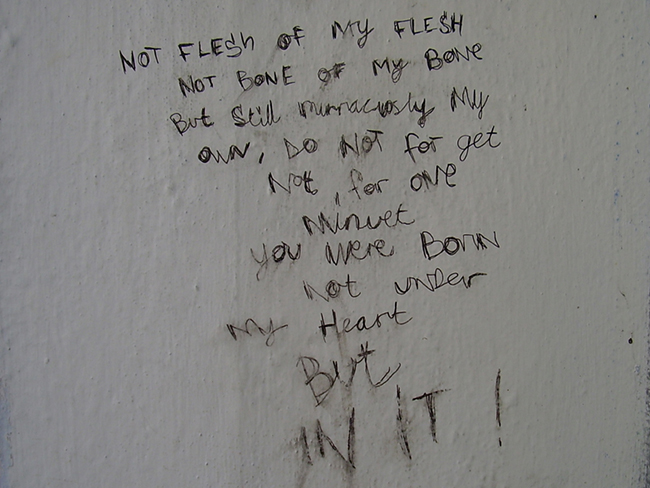 NOT FLESh oF My FLESH
NOT BONE oF My BoNe
But Still murraciously My
own, Do NoT for get
Not, for oNe
Minuet
you were BorN
Not under
my Heart
But
IN IT !